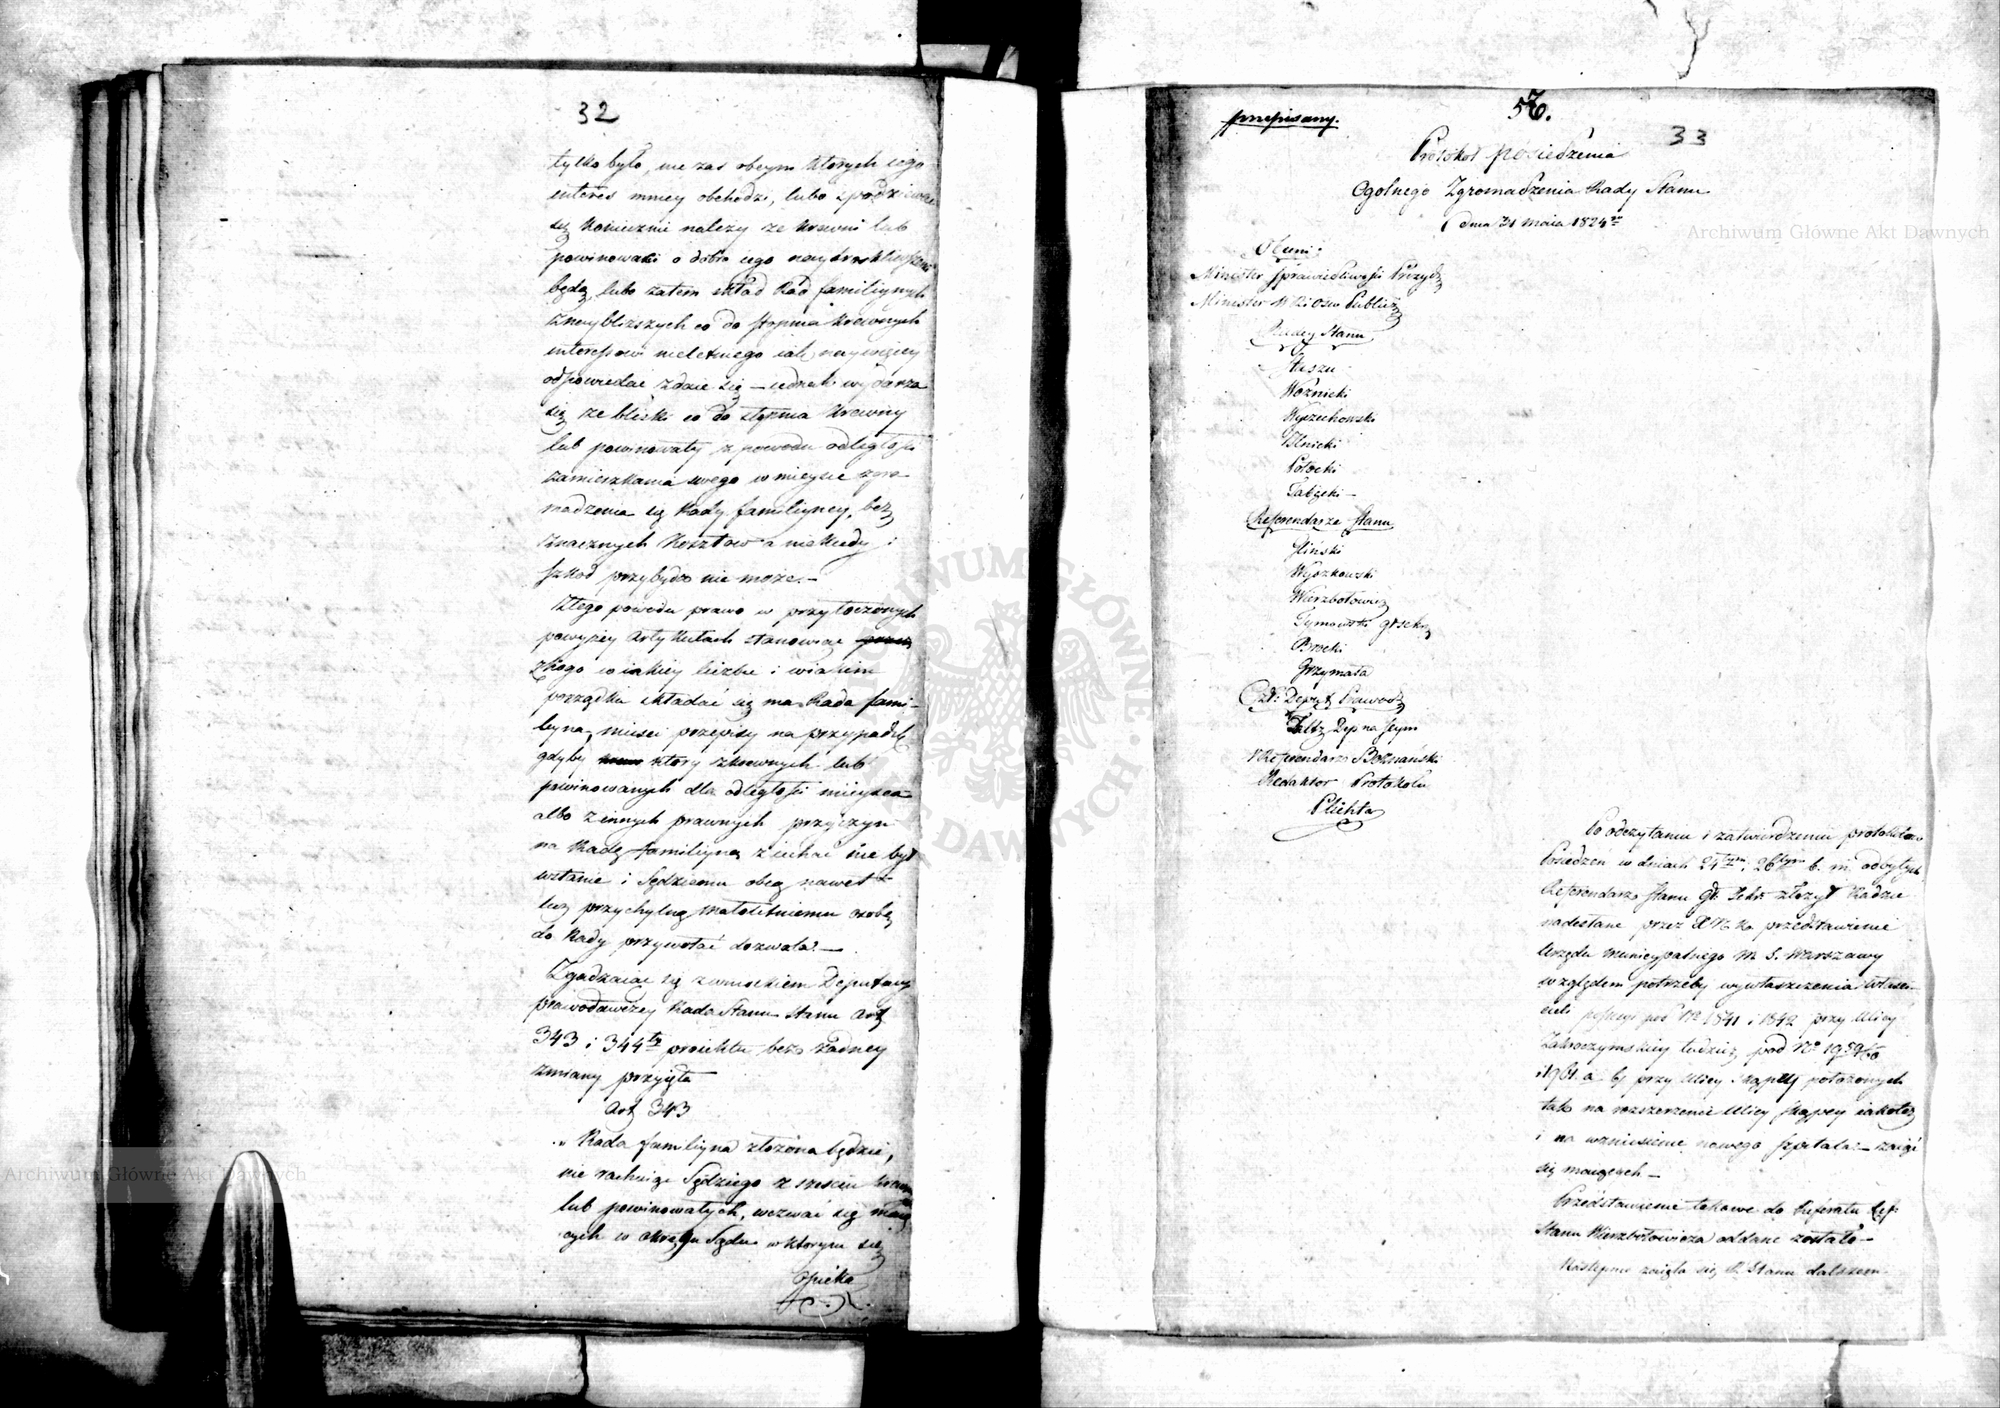 32
tylko było, nie zas obcym ktorych iego
interes mniey obchodzi, lubo spodziewac
się koniecznie należy ze krewni lub
powinowaci o dobro iego
będą, lubo zatem skład Rad familiynych
z naybliższych co do stopnia krewnych
interessowi nieletniego iak naywięcey
odpowiedać zdaie się — iednak wydarza
się ze bliski co do stopnia krewny
lub powinowaty z powodu odległości
zamieszkania swego w mieysce zgro-
madzenia się Rady familiyney, bez
znacznych kosztow a niekiedy i
szkod przybydź nie może. —
Z tego powodu prawo w przytoczonych
powyżey artykułach stanowiąc
z kogo w iakiey liczbie i w iakim
porządku składać się ma Rada fami-
liyna, mieści przepisy na przypadek
gdyby ktory z krewnych lub
powinowanych dla odległości mieysca
albo z innych prawnych przyczyn
na Radę familiyną ziechać nie był
w stanie i Sędziemu obcą nawet
lecz przychylną małoletniemu osobę
do Rady przywołać dozwala. —
Zgadzaiąc się z wnioskiem Deputacyi
prawodawczey Rada Stanu Art
343 i 344ty proiektu bez żadney
zmiany przyięła
Art 343
„ Rada familiyna złożona będzie,
nie rachuiąc Sędziego z sześciu
lub powinowatych, wezwać się maią
cych w okręgu Sądu w ktorym się
Opieka
przepisany.
57.
33
Protokoł posiedzenia
Ogolnego Zgromadzenia Rady Stanu
dnia 31 Maia 1824
Obecni:
Minister Sprawiedliwości Prezyd
Minister W R i Osw Publicz
Radcy Stanu
Staszic
Woźnicki
Wyczechowski
Potocki
Referendarze Stanu
Gliński
Wyczkowski
Wierzbołowicz
Tymowski
Brocki
Grzymała
Czł: Deput Prawod
Zeltz Dep na Seym
Referendarz Boznański
Redaktor Protokołu
Plichta
Po odczytaniu i zatwierdzeniu protokołow
Posiedzeń w dniach 24tym i 26tym b. m. odbytych
Referendarz Stanu Gł. Sekr. złożył Radzie
nadesłane przez przedstawienie
Urzędu Municypalnego M. S. Warszawy
względem potrzeby wywłaszczenia Właści-
cieli possesyi pod No 1841 i 1842 przy Ulicy
Zakroczymskiey tudzież pod No 1959/60
i 1961. a b przy Ulicy Skąpey położonych
tak na rozszerzenie Ulicy Skąpey iakoteż
i na wzniesienie nowego Szpitala — zaiąć
się maiących —
Przedstawienie takowe do Referatu Ref
Stanu Wierzbołowicza oddane zostało —
Następnie zaięła się R Stanu dalszem
Archiwum Główne Akt Dawnych
Archiwum Główne Akt Dawnych
ARCHIWUM GŁÓWNE AKT DAWNYCH